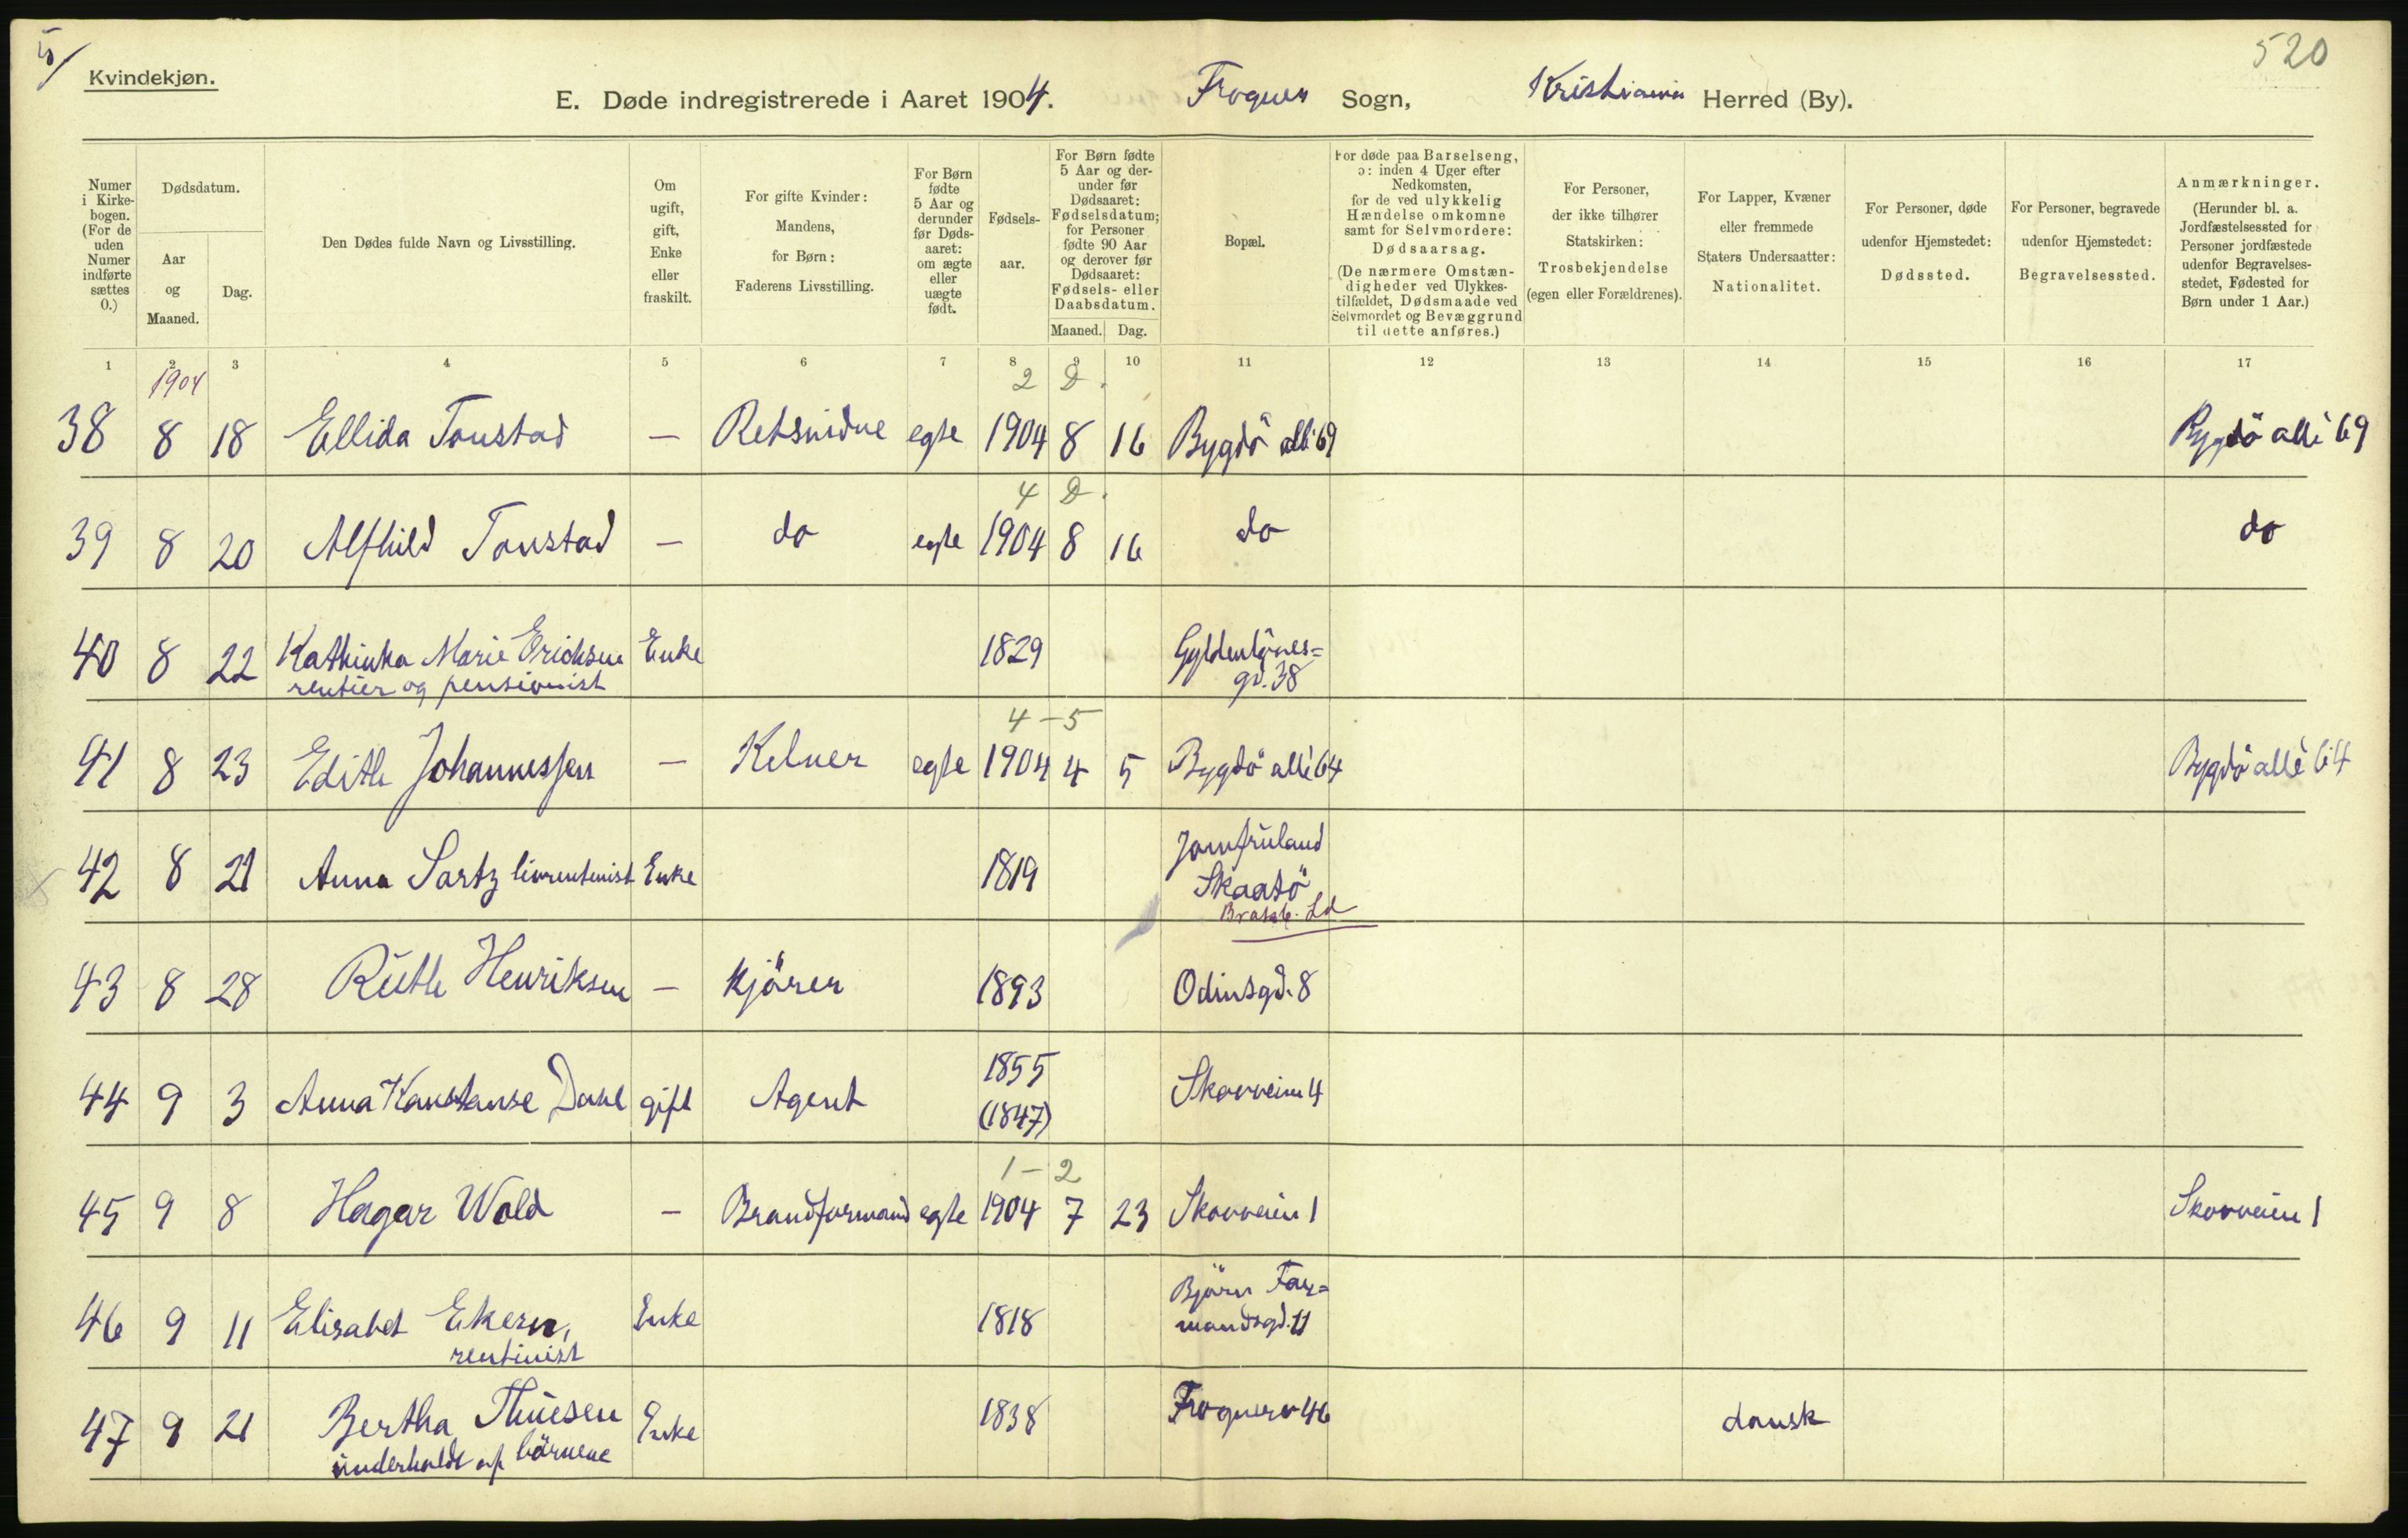 5/
Kvindekjøn.
520
E. Døde indregistrerede i Aaret 1904. Frogner Sogn, Kristiania Herred (By).
Numer i Kirkebogen. (For de uden Numer indførte sættes 0.)
Dødsdatum.
Aar og Maaned.
Dag.
Den Dødes fulde Navn og Livsstilling.
Om ugift, gift, Enke eller fraskilt.
For gifte Kvinder: Mandens, for Børn: Faderens Livsstilling.
For Børn fødte 5 Aar og derunder før Dødsaaret: om ægte eller uægte født.
Fødselsaar.
For Børn fødte 5 Aar og derunder før Dødsaaret: Fødselsdatum; for Personer fødte 90 Aar og derover før Dødsaaret: Fødsels- eller Daabsdatum.
Maaned. Dag.
Bopæl.
For døde paa Barselseng, ɔ: inden 4 Uger efter Nedkomsten, for de ved ulykkelig Hændelse omkomne samt for Selvmordere: Dødsaarsag. (De nærmere Omstændigheder ved Ulykkestilfældet, Dødsmaade ved Selvmordet og Bevæggrund til dette anføres.)
For Personer, der ikke tilhører Statskirken: Trosbekjendelse (egen eller Forældrenes).
For Lapper, Kvæner eller fremmede Staters Undersaatter: Nationalitet.
For Personer, døde udenfor Hjemstedet: Dødssted.
For Personer, begravede udenfor Hjemstedet: Begravelsessted.
Anmærkninger. (Herunder bl. a. Jordfæstelsessted for Personer jordfæstede udenfor Begravelsesstedet, Fødested for Børn under 1 Aar.)
1 2 3 4 5 6 7 8 9 10 11 12 13 14 15 16 17
1904 2 D.
38 8 18 Ellida Tonstad — Retsvidne egte 1904 8 16 Bygdö allé 69 Bygdö allé 69
4 D.
39 8 20 Alfhild Tonstad — do egte 1904 8 16 do do
40 8 22 Kathinka Marie Ericksen Enke 1829 Gyldenlöves=
rentier og pensionist gd. 38
4 - 5
41 8 23 Edith Johannessen — Kelner egte 1904 4 5 Bygdö allé 64 Bygdö allé 64
Jomfruland
42 8 21 Anna Sartz livrentenist Enke 1819 Skaatö
Bratsb. Ld
43 8 28 Ruth Henriksen — kjörer 1893 Odinsgd. 8
1855
44 9 3 Anna Konstanse Dahl gift Agent (1847) Skovveien 4
1 - 2
45 9 8 Hagar Wold — Brandformand egte 1904 7 23 Skovveien 1 Skovveien 1
Björn Far=
46 9 11 Elisabet Ekern, Enke 1818 mandsgd. 11
rentinist
47 9 21 Bertha Thuesen Enke 1838 Frognerv 46 dansk
underholdt af börnene